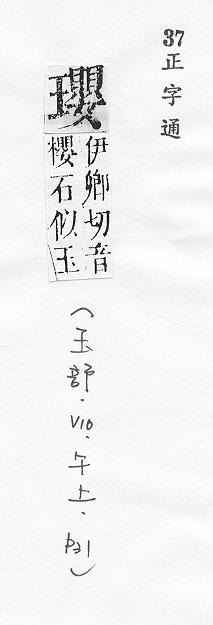 37正字通
瓔
伊卿切音
櫻石似玉
（玉部．V10．午上．P31）